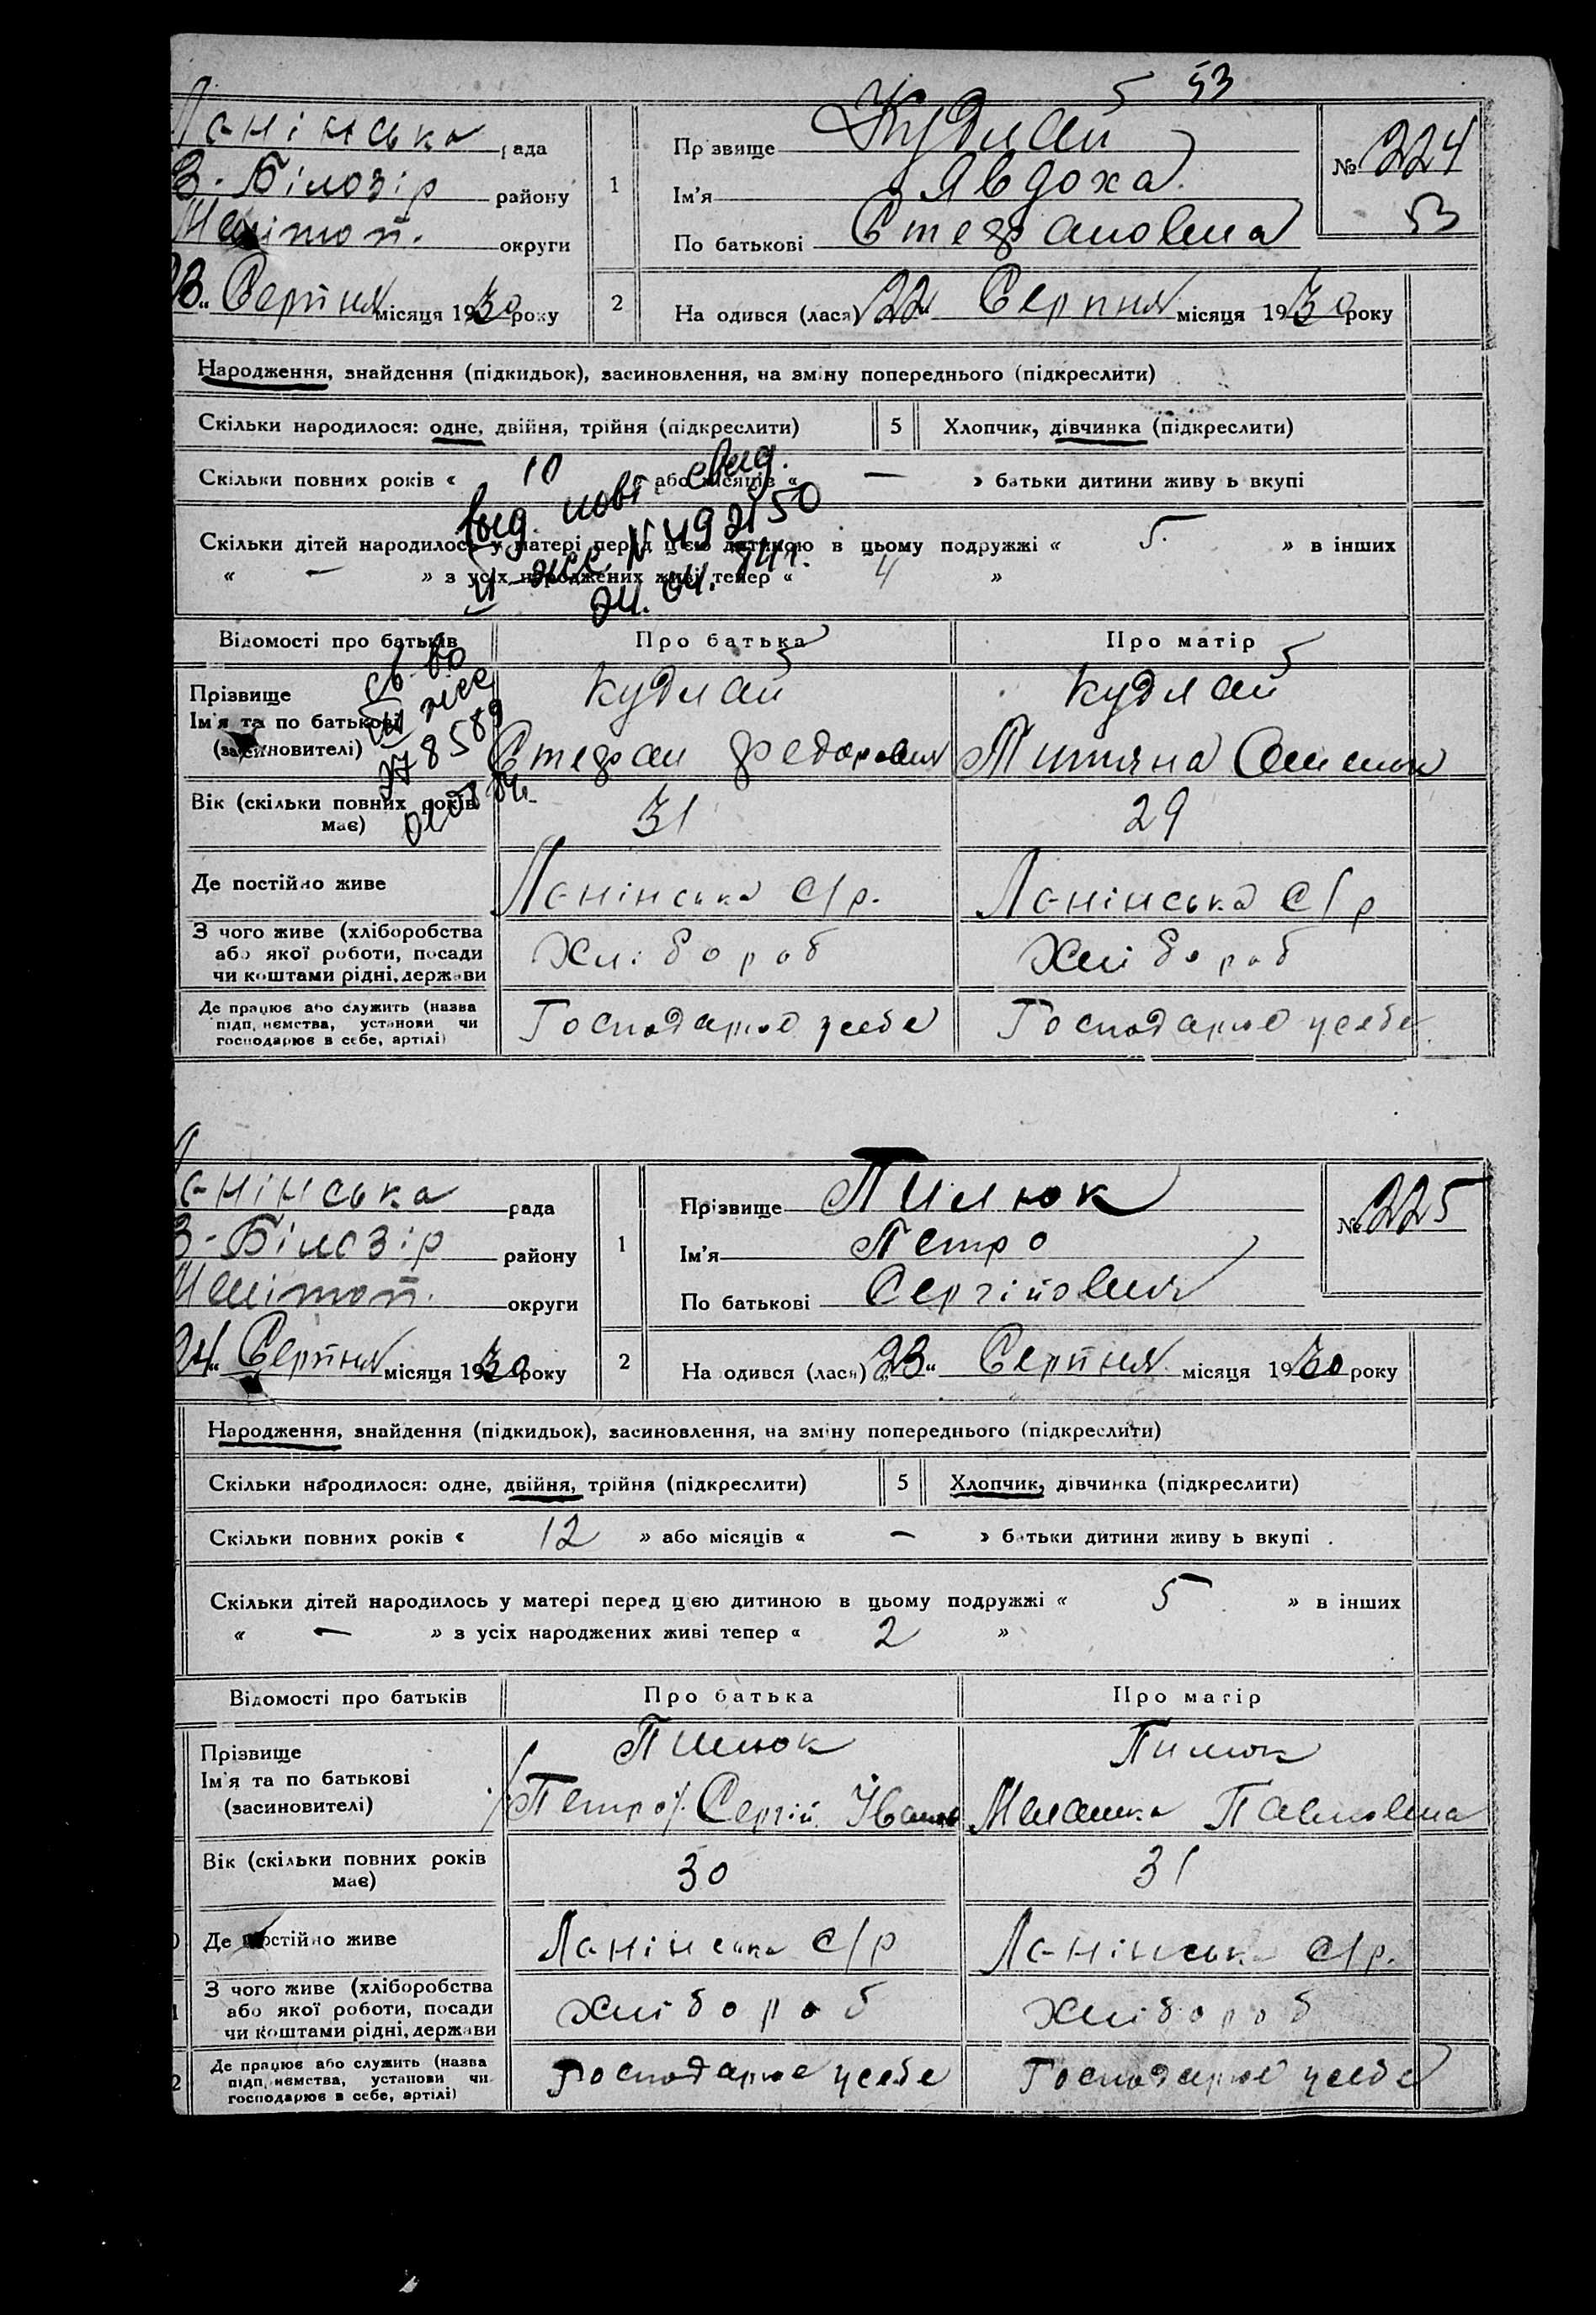 53
Ленінська рада
В-Білозір району
Меліто п. округи
23 " Серпня місяця 1930 року
1
Прізвище Кудлай
Ім'я Явдоха
По батькові Стефановна
№ 224
53
2
На одився (лася) 22 " Серпня місяця 1930 року
Народження, знайдення (підкидьок), засиновлення, на зміну попереднього (підкреслити)
Скільки народилося: одне, двійня, трійня (підкреслити)
5
Хлопчик, дівчинка (підкреслити)
Скільки повних років « 10 » або місяців « — » батьки дитини живу ь вкупі
Скільки дітей народилось у матері перед цією дитиною в цьому подружжі « 5. » в інших
« — » з усіх народжених живі тепер « 4 »
выд. нові свид.
Відомості про батьків
Про батька
Про матір
Прізвище
Ім'я та по батькові
(засиновителі)
Кудлай
Стефан Федорович
Кудлай
Титяна
св-во
Вік (скільки повних років
має)
31
29
Де постійно живе
Ленінська с/р.
Ленінська с/р
З чого живе (хліборобства
або якої роботи, посади
чи коштами рідні, держави
Хлібороб
Хлібороб
Де працює або служить (назва
підп, иємства, установи чи
господарює в себе, артілі)
Господарює усебе
Господарює усебе
Ленінська рада
В-Білозір району
Меліто п. округи
24 " Серпня місяця 1930 року
1
Прізвище Пилюк
Ім'я Петро
По батькові Сергійович
№ 225
2
На одився (лася) 23 " Серпня місяця 1930 року
Народження, знайдення (підкидьок), засиновлення, на зміну попереднього (підкреслити)
Скільки народилося: одне, двійня, трійня (підкреслити)
5
Хлопчик, дівчинка (підкреслити)
Скільки повних років « 12 » або місяців « — » батьки дитини живу ь вкупі
Скільки дітей народилось у матері перед цією дитиною в цьому подружжі « 5 » в інших
« — » з усіх народжених живі тепер « 2 »
Відомості про батьків
Про батька
Про матір
Прізвище
Ім'я та по батькові
(засиновителі)
Пилюк
/Петро/. Сергій Іванов
Пилюк
Меланка Павловна
Вік (скільки повних років
має)
30
31
Де постійно живе
Ленінська с/р
Ленінська с/р.
З чого живе (хліборобства
або якої роботи, посади
чи коштами рідні, держави
Хлібороб
Хлібороб
Де працює або служить (назва
підп, иємства, установи чи
господарює в себе, артілі)
Господарює усебе
Господарює усебе